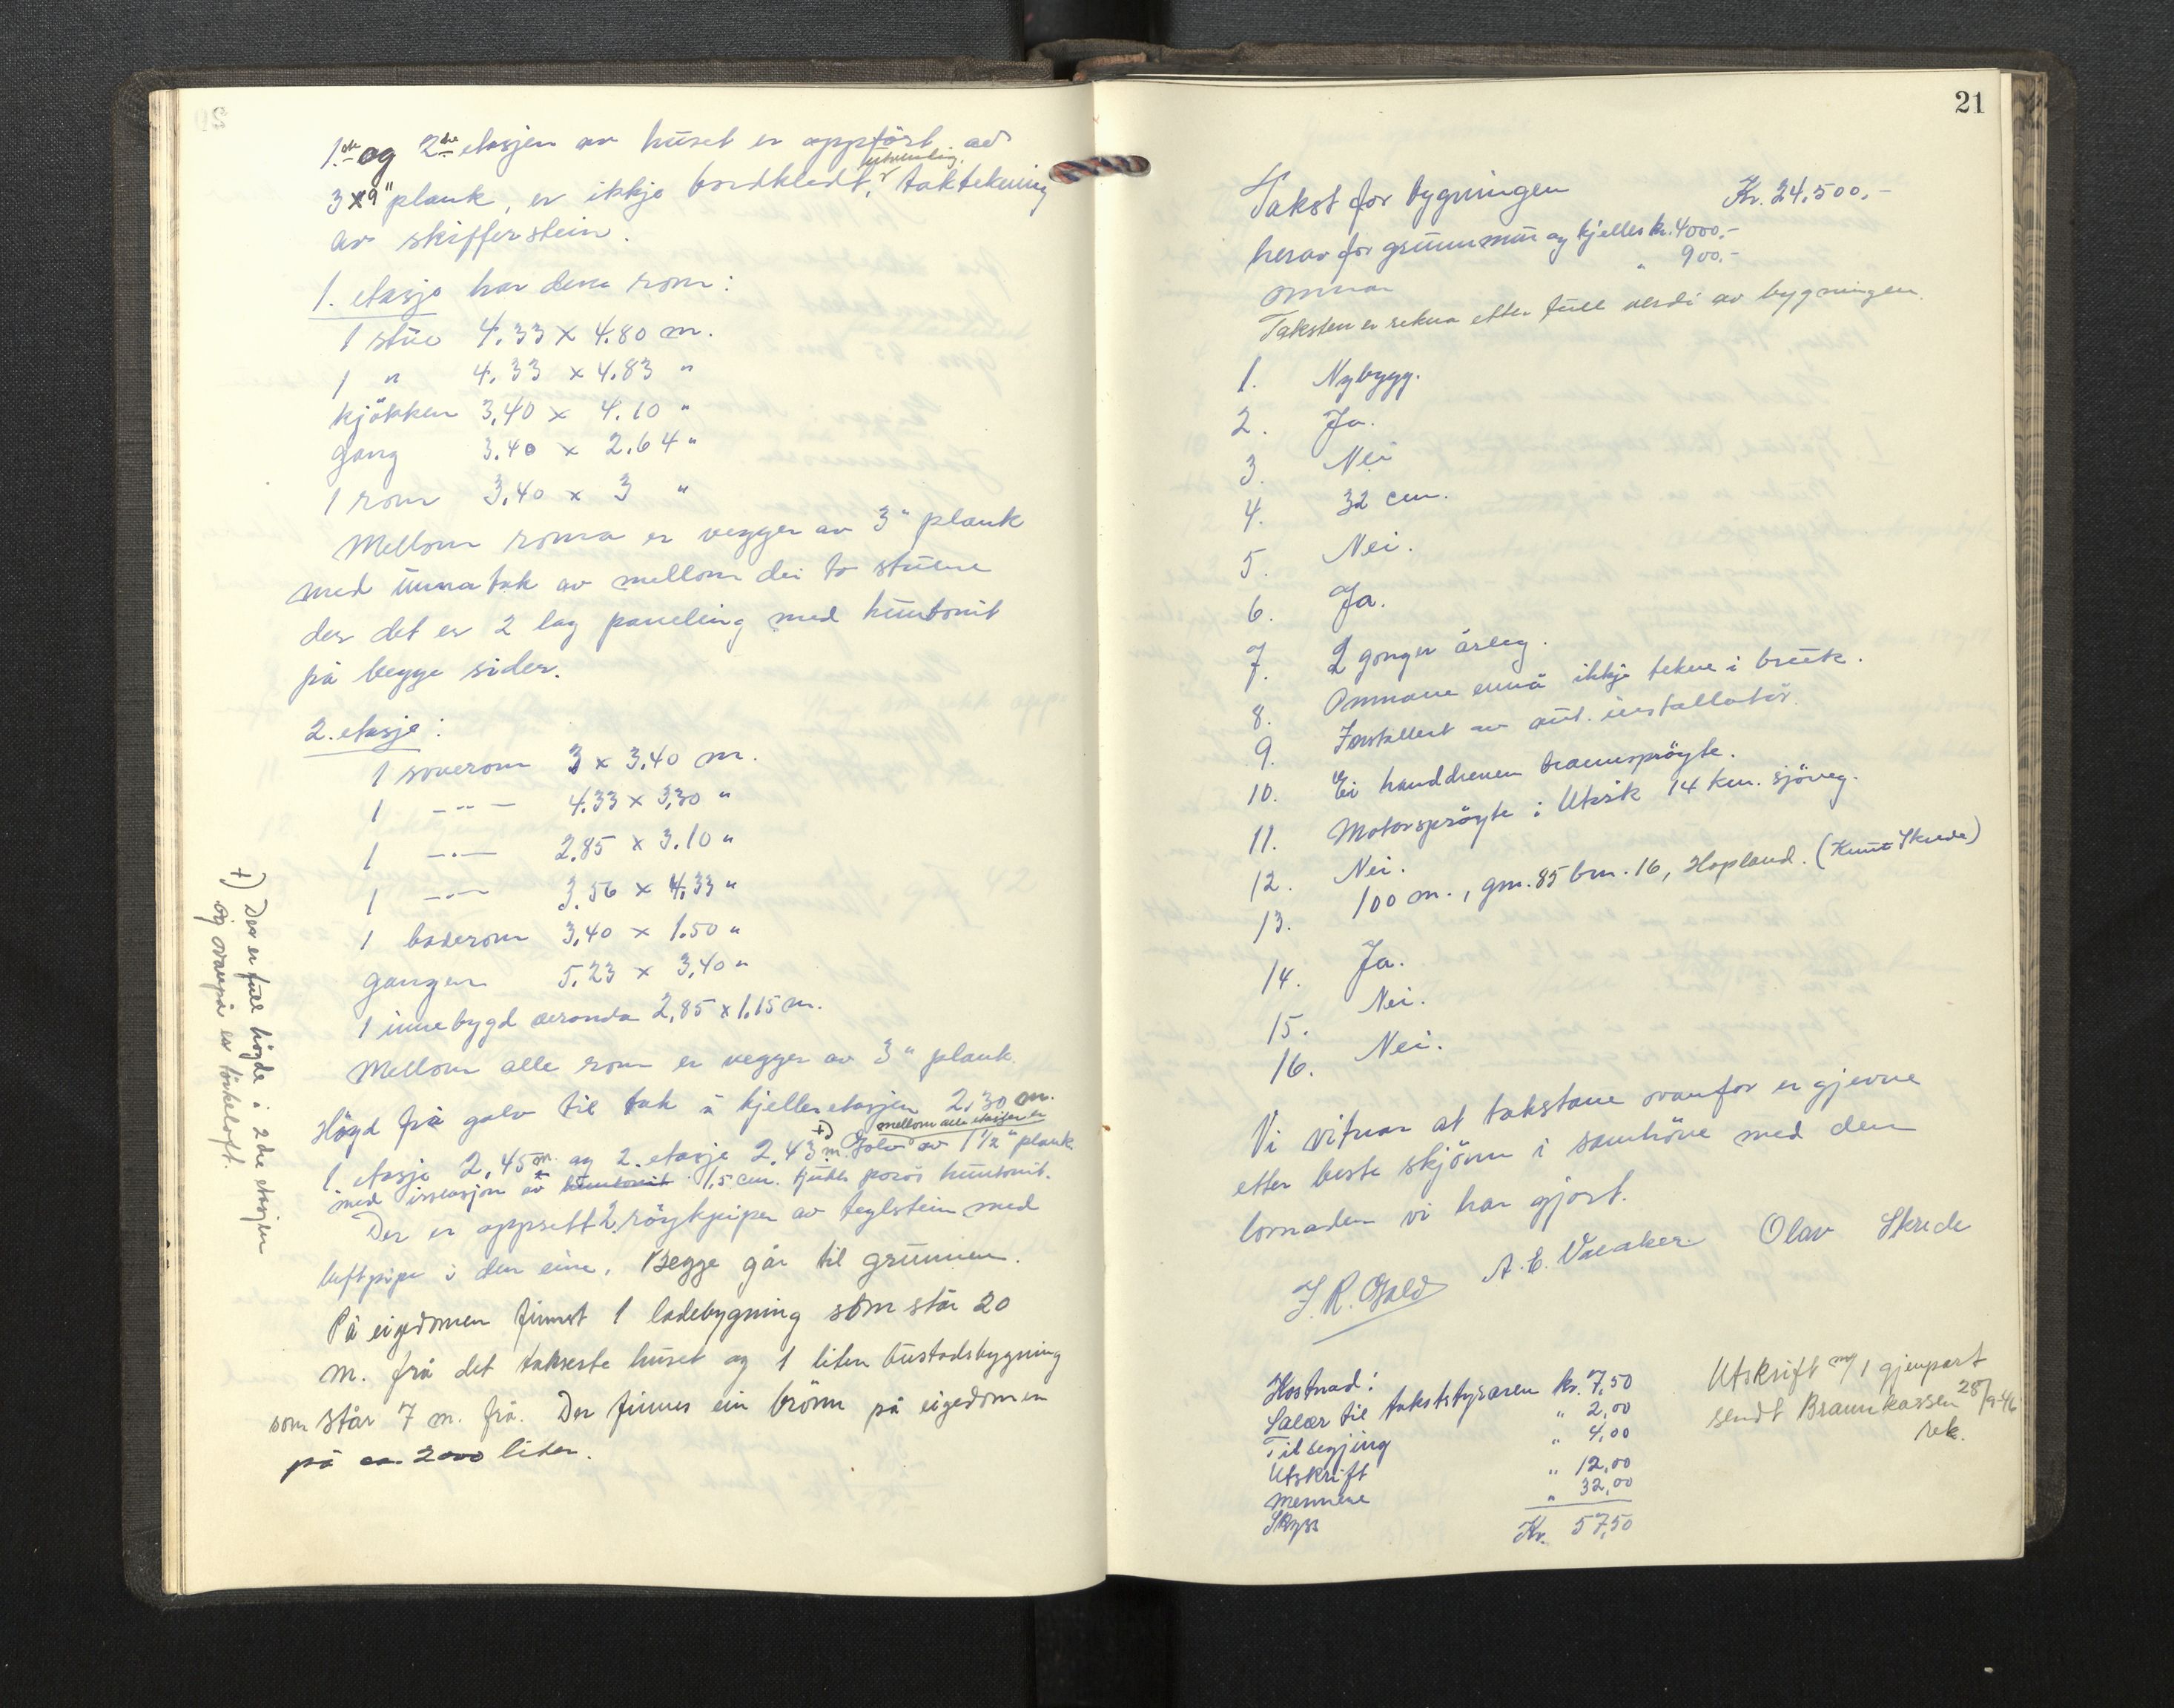 1ste og 2dre etasjen av huset er oppført av
3 x 9" plank, er ikkje bordkledt, utvendig. taktekning
av skifferstein.
1. etasje har desse rom:
1 stue 4.33 x 4.80 m.
1 " 4.33 x 4.83 "
kjøkken 3,40 x 4.10 "
gang 3.40 x 2.64 "
1 rom 3,40 x 3 "
Mellom romma er vegger av 3" plank
med unnatak av mellom dei to stuene
der det er 2 lag paneling med huntonit
på begge sider.
2. etasje:
1 soverom 3 x 3.40 m.
1 -"- 4.33 x 3,30 "
1 -"- 2.85 x 3.10 "
1 -"- 3.56 x 4,33 "
1 baderom 3,40 x 1.50 "
gangen 5.23 x 3,40 "
1 innebygd veranda 2,85 x 1,15 m.
Mellom alle rom er vegger av 3" plank.
Høgd frå golv til tak i kjelleretasjen 2,30 m.
1. etasje 2,45 m. og 2. etasje 2.43 m. +) Golv mellom alle etasjer er av 1 1/2" plank
med issolasjon av huntonit 1,5 cm. tjukk porøs huntonit.
Der er oppsett 2 røykpiper av teglstein med
luftpipe i den eine. Begge går til grunnen.
På eigedomen finnst 1 lødebygning som står 20
m. frå det takserte huset og 1 liten bustadsbygning
som står 7 m. frå. Der finnes ein brønn på eigedomen
på ca. 2000 liter.
+) Der er full høgde i 2dre etasjen
og ovanpå er tørkeloft.
21
Takst for bygningen Kr. 24.500,-
herav for grunnmur og kjeller kr. 4000,-
omnar " 900,-
Taksten er rekna etter full verdi av bygningen.
1. Nybygg.
2. Ja.
3. Nei
4. 32 cm.
5. Nei.
6. Ja.
7. 2 gonger årleg.
8. Omnane ennå ikkje tekne i bruk.
9. Installert av aut. installatør.
10. Ei handdreven brannsprøyte.
11. Motorsprøyte i Utvik 14 km. sjøveg.
12. Nei.
13. 100 m., gnr. 85 bnr. 16, Hopland. (Knut Skrede)
14. Ja.
15. Nei.
16. Nei.
Vi vitnar at takstane ovanfor er gjevne
etter beste skjønn i samhøve med den
lovnaden vi har gjort.
J. R. Gald A. E. Vaaaker Olav Skrede
Kostnad:
Salær til takststyraren kr. 7,50
Tilsegjing " 2,00
Utskrift " 4,00
Mennene " 12,00
Skyss " 32,00
Kr. 57,50
Utskrift m/ 1 gjenpart
sendt Brannkassen 28/9-46
rek.